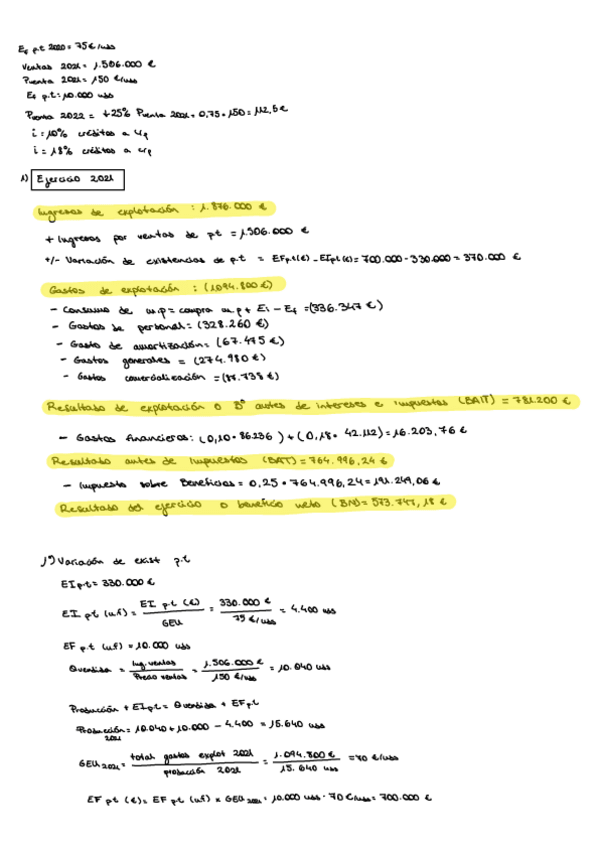 Ef p.t 2020 = 75 €/uds
Ventas 2021 = 1.506.000 €
Pventa 2021 = 150 €/uds
Ef p.t = 10.000 uds
Pventa 2022 = +25% Pventa 2021 = 0,75 · 150 = 112,5 €
i = 10% créditos a l/p
i = 18% créditos a c/p
1) Ejercicio 2021
Ingresos de explotación : 1.876.000 €
+ Ingresos por ventas de pt = 1.506.000 €
+/- Variación de existencias de p.t = EFp.t(€) - EIpt(€) = 700.000 - 330.000 = 370.000 €
Gastos de explotación : (1.094.800 €)
- Consumo de m.p = compra m.p + Ei - Ef = (336.347 €)
- Gastos de personal = (328.260 €)
- Gasto de amortización = (67.475 €)
- Gastos generales = (274.980 €)
- Gastos comercialización = (87.738 €)
Resultado de explotación o Bº antes de intereses e impuestos (BAIT) = 781.200 €
- Gastos financieros: (0,10 · 86.236) + (0,18 · 42.112) = 16.203,76 €
Resultado antes de Impuestos (BAT) = 764.996,24 €
- Impuesto sobre Beneficios = 0,25 · 764.996,24 = 191.249,06 €
Resultado del ejercicio o beneficio neto (BN) = 573.747,18 €
1º) Variación de exist p.t
EI p.t = 330.000 €
EI pt (u.f) = EI p.t (€) / GEU = 330.000 € / 75 €/uds = 4.400 uds
EF p.t (u.f) = 10.000 uds
Qvendida = Ing. ventas / Precio ventas = 1.506.000 € / 150 €/uds = 10.040 uds
Producción + EI p.t = Qvendida + EF p.t
Producción 2021 = 10.040 + 10.000 - 4.400 = 15.640 uds
GEU 2021 = total gastos explot 2021 / producción 2021 = 1.094.800 € / 15.640 uds = 70 €/uds
EF p.t (€) = EF p.t (u.f) x GEU 2021 = 10.000 uds · 70 €/uds = 700.000 €